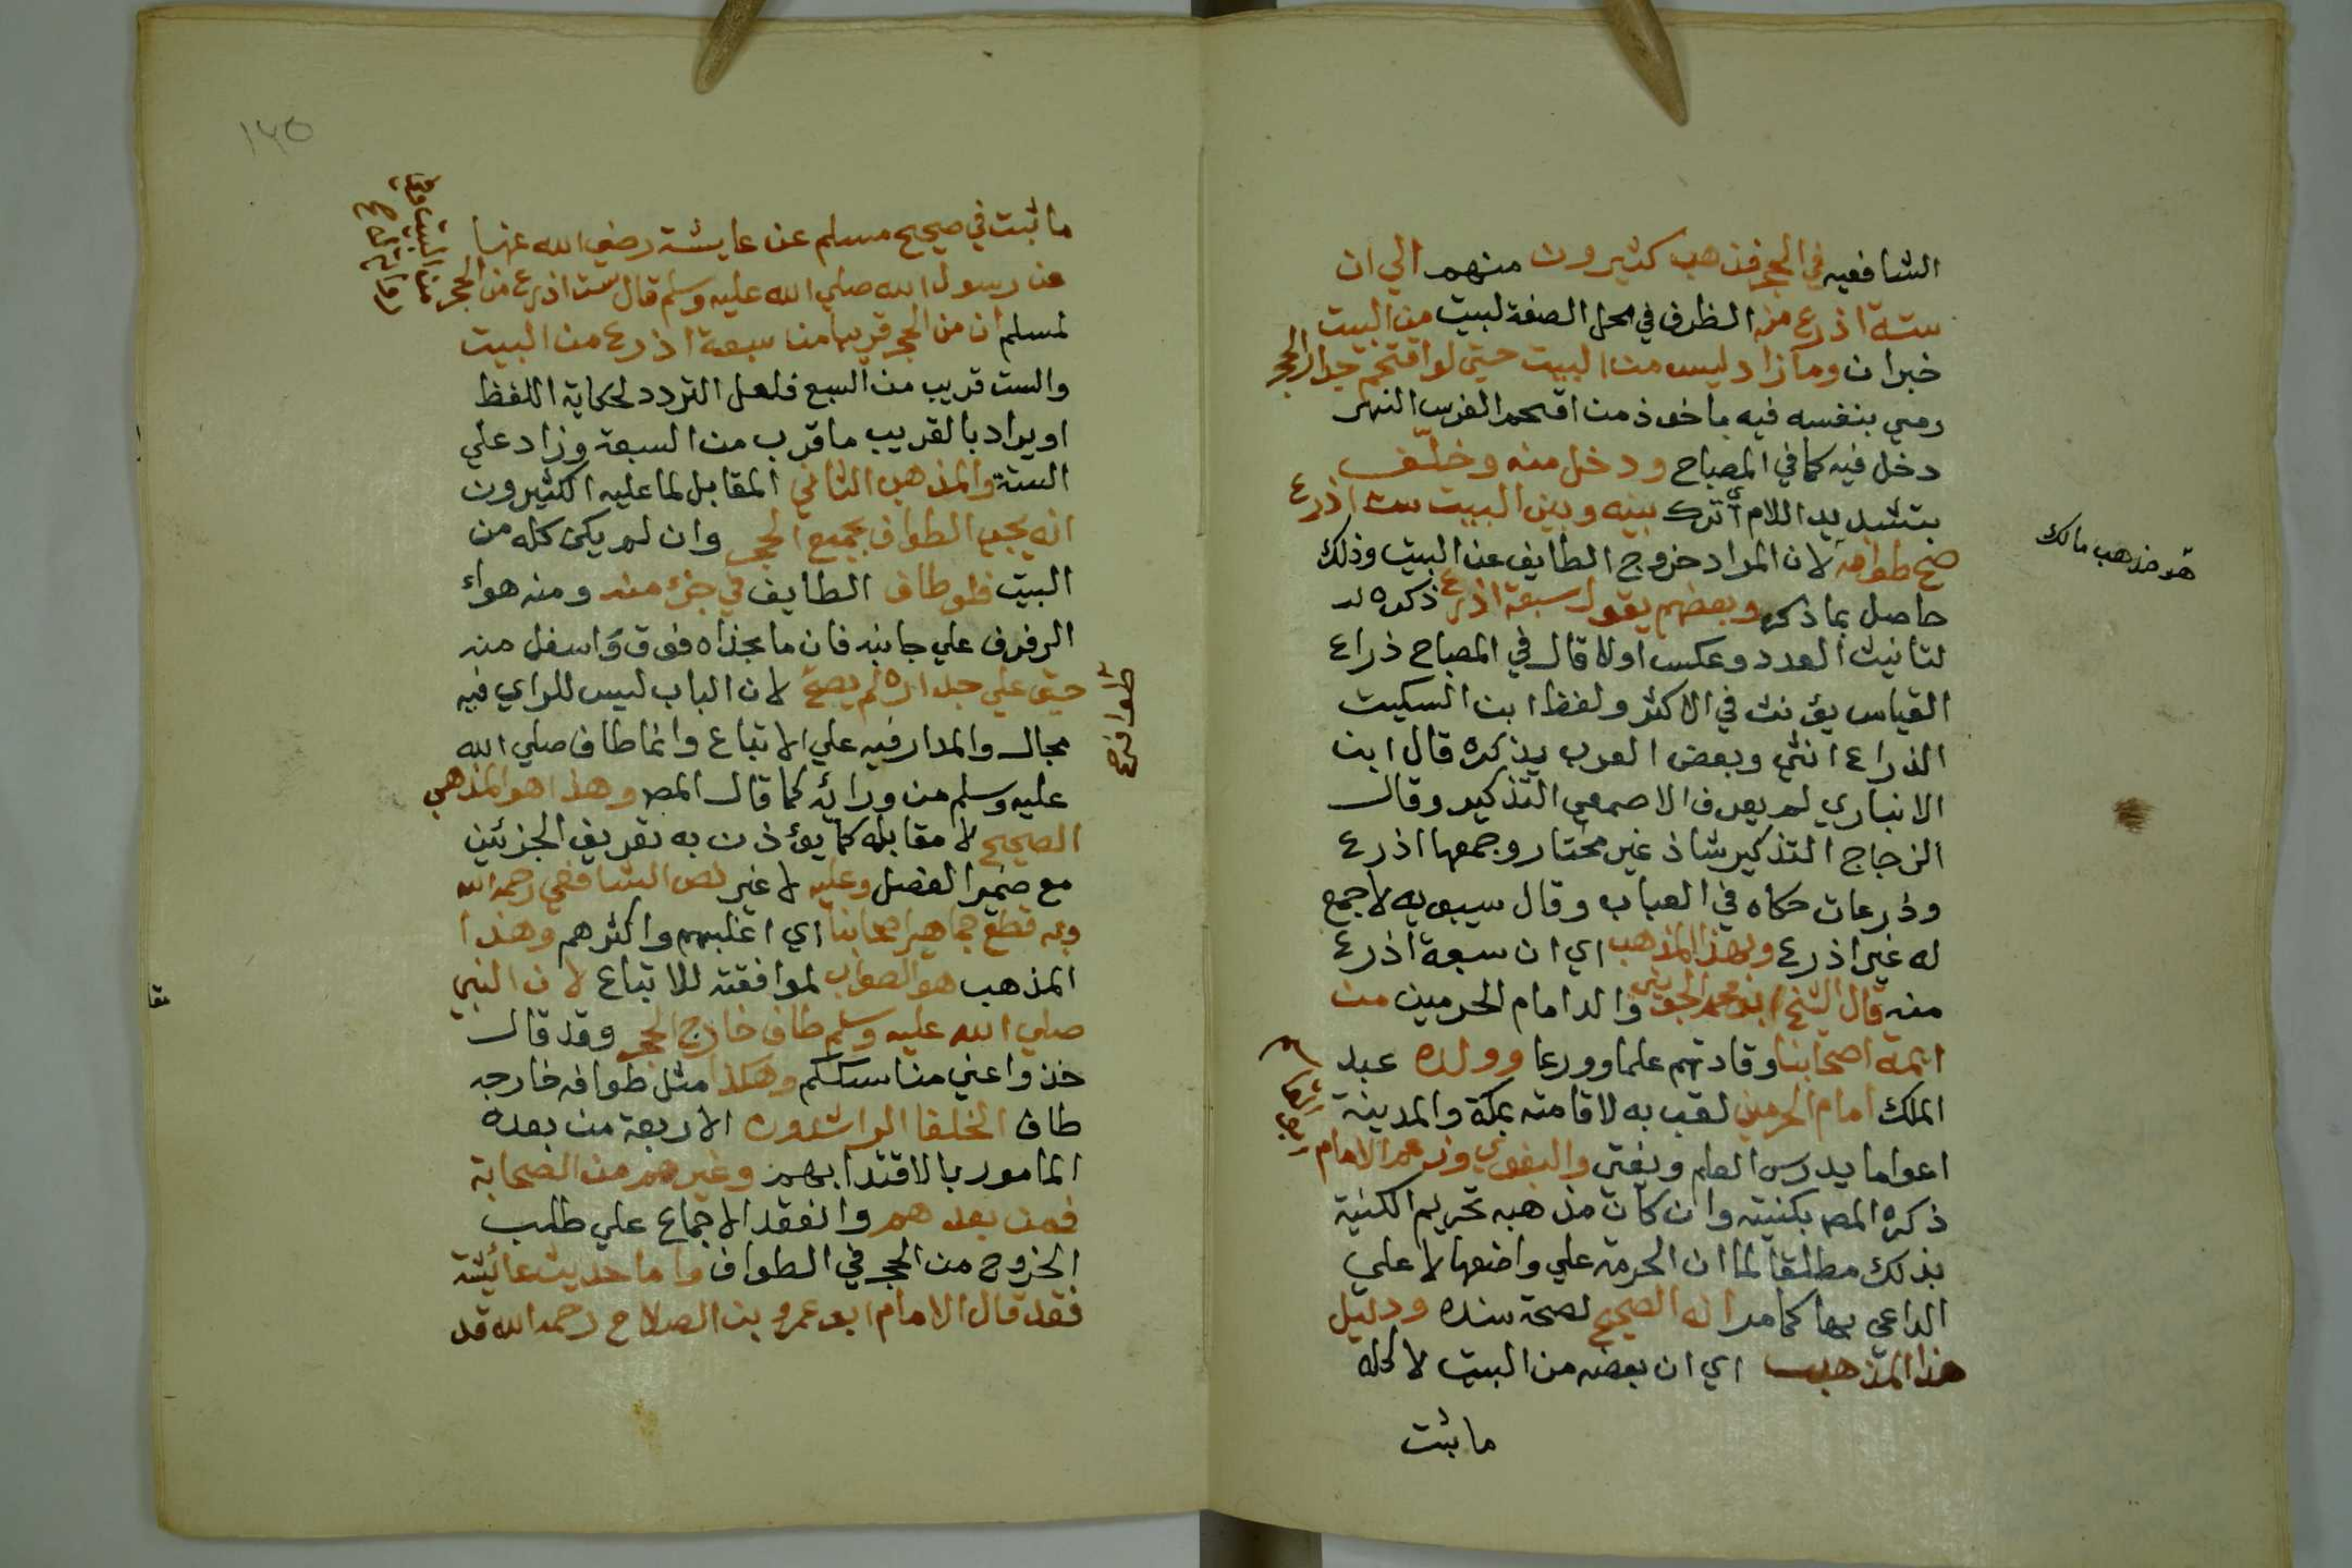 الشافعيه في الحجر فذهب كثيرون منهم الي ان
ستة اذرع من الظرف في محل الصفة لبيت من البيت
خبر ان وما زاد ليس من البيت حتي لو اقتحم جدار الحجر
رمي بنفسه فيه ماخوذ من اقتحم الفرس النهر
دخل فيه كما في المصباح ودخل منه وخلّف
بتشديد اللام أي ترك بينه وبين البيت ست اذرع
صح طوافه لان المراد خروج الطايف عن البيت وذلك
هو مذهب مالك
حاصل بما ذكر وبعضهم يقول سبعة اذرع ذكره
لتانيث العدد وعكس اولا قال في المصباح ذراع
القياس يؤنث في الاكثر ولفظ ابن السكيت
الذراع انثي وبعض العرب يذكره قال ابن
الانباري لم يعرف الاصمعي التذكير وقال
الزجاج التذكير شاذ غير مختار وجمعها اذرع
وذرعات حكاه في العباب وقال سيبويه لا جمع
له غير اذرع وبهذا المذهب اي ان سبعة اذرع
منه قال الشيخ ابو محمد الجويني والد امام الحرمين من
ايمة اصحابنا وقادتهم علما وورعا وولده عبد
الملك امام الحرمين لقب به لاقامته بمكة والمدينة
اعواما يدرس العلم ويفتي والبغوي وزعم الامام
ذكره المص بكنيته وان كان مذهبه تحريم الكنية
بذلك مطلقا لما ان الحرمة علي واضعها لا علي
الداعي بها كما مر انه الصحيح لصحة سنده ودليل
هذا المذهب اي ان بعضه من البيت لا كله
ما ثبت
١٢٥
ما ثبت في صحيح مسلم عن عايشة رضي الله عنها
عن رسول الله صلي الله عليه وسلم قال ست اذرع من الحجر من البيت وفي رواية
لمسلم ان من الحجر قريبا من سبعة اذرع من البيت
والست قريب من السبع فلعل التردد لحكاية اللفظ
او يراد بالقريب ما قرب من السبعة وزاد علي
الستة والمذهب الثاني المقابل لما عليه الكثيرون
انه يجب الطواف بجميع الحجر وان لم يكن كله من
البيت فلو طاف الطايف في جزء منه ومنه هواء
الرفرف علي جانبه فان ما بحذاه فوق واسفل منه
حتي علي جداره لم يصح لان الباب ليس للراي فيه
طوافه
مجال والمدار فيه علي الاتباع وانما طاف صلي الله
عليه وسلم من ورائه كما قال المص وهذا هو المذهب
الصحيح لا مقابله كما يؤذن به تعريف الجزئين
مع ضمير الفصل وعليه لا غير نص الشافعي رحمه الله
وبه قطع جماهير اصحابنا اي اغلبهم واكثرهم وهذا
المذهب هو الصواب لموافقته للاتباع لان النبي
صلي الله عليه وسلم طاف خارج الحجر وقد قال
خذوا عني مناسككم وهكذا مثل طوافه خارجه
طاف الخلفا الراشدون الاربعة من بعده
المامور بالاقتدا بهم وغيرهم من الصحابة
فمن بعدهم وانعقد الاجماع علي طلب
الخروج من الحجر في الطواف واما حديث عائيشة
فقد قال الامام ابو عمرو بن الصلاح رحمه الله قد